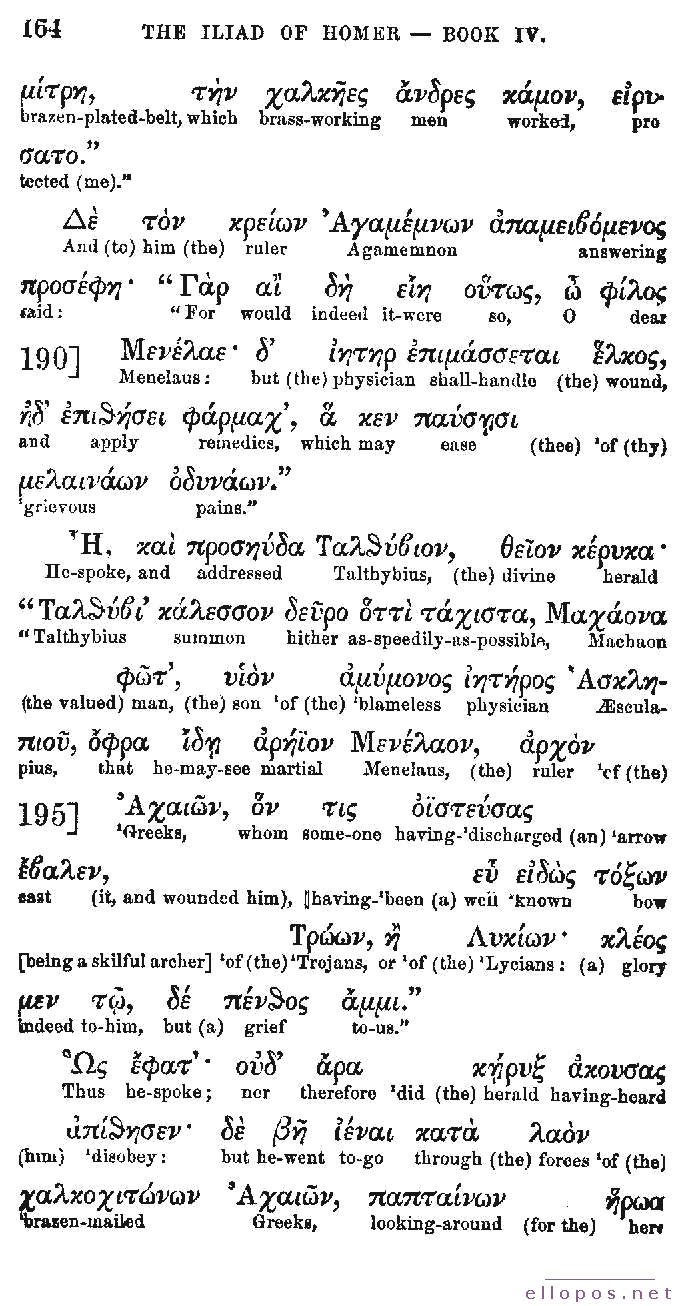 164 THE ILIAD OF HOMER — BOOK IV.
μίτρη, τὴν χαλκῆες ἄνδρες κάμον, εἰρύ-
brazen-plated-belt, which brass-working men worked, pro
σατο.”
tected (me)."
Δὲ τὸν κρείων Ἀγαμέμνων ἀπαμειβόμενος
And (to) him (the) ruler Agamemnon answering
προσέφη· “Γὰρ αἲ δὴ εἴη οὕτως, ὦ φίλος
said: "For would indeed it-were so, O dear
190] Μενέλαε· δ’ ἰητηρ ἐπιμάσσεται ἕλκος,
Menelaus: but (the) physician shall-handle (the) wound,
ἠδ’ ἐπιθήσει φάρμαχ’, ἅ κεν παύσῃσι
and apply remedies, which may ease (thee) 'of (thy)
μελαινάων ὀδυνάων.”
'grievous pains."
Ἦ, καὶ προσηύδα Ταλθύβιον, θεῖον κέρυκα·
He-spoke, and addressed Talthybius, (the) divine herald
“Ταλθύβι’ κάλεσσον δεῦρο ὅττὶ τάχιστα, Μαχάονα
"Talthybius summon hither as-speedily-as-possible, Machaon
φῶτ’, υἱὸν ἀμύμονος ἰητῆρος Ἀσκλη-
(the valued) man, (the) son 'of (the) 'blameless physician Æscula-
πιοῦ, ὄφρα ἴδῃ ἀρήϊον Μενέλαον, ἀρχὸν
pius, that he-may-see martial Menelaus, (the) ruler 'of (the)
195] Ἀχαιῶν, ὅν τις ὀϊστεύσας
'Greeks, whom some-one having-'discharged (an) 'arrow
ἔβαλεν, εὖ εἰδὼς τόξων
cast (it, and wounded him), ||having-'been (a) well 'known bow
Τρώων, ἢ Λυκίων· κλέος
[being a skilful archer] 'of (the) 'Trojans, or 'of (the) 'Lycians: (a) glory
μεν τῷ, δέ πένθος ἄμμι.”
indeed to-him, but (a) grief to-us."
Ὣς ἔφατ’· οὐδ’ ἄρα κήρυξ ἀκουσας
Thus he-spoke; nor therefore 'did (the) herald having-heard
ἀπίθησεν· δὲ βῆ ἰέναι κατὰ λαὸν
(him) 'disobey: but he-went to-go through (the) forces 'of (the)
χαλκοχιτώνων Ἀχαιῶν, παπταίνων ἥρωα
'brazen-mailed Greeks, looking-around (for the) hero
ellopos.net